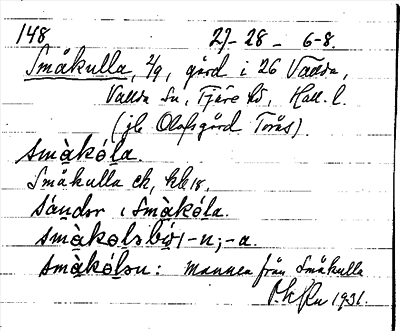 148 27-28 - 6-8.
Småkulla, 2/9, gård i 26 Vallda,
Vallda Sn, Fjäre hd, Hall. l.
(jfr Olofsgård Torås).
smàkóla.
Småkulla ch, hb 18.
sándor i smàkóla.
smàkolsbọ́ı -n; -a.
smàkólsn: mannen från Småkulla
1931.